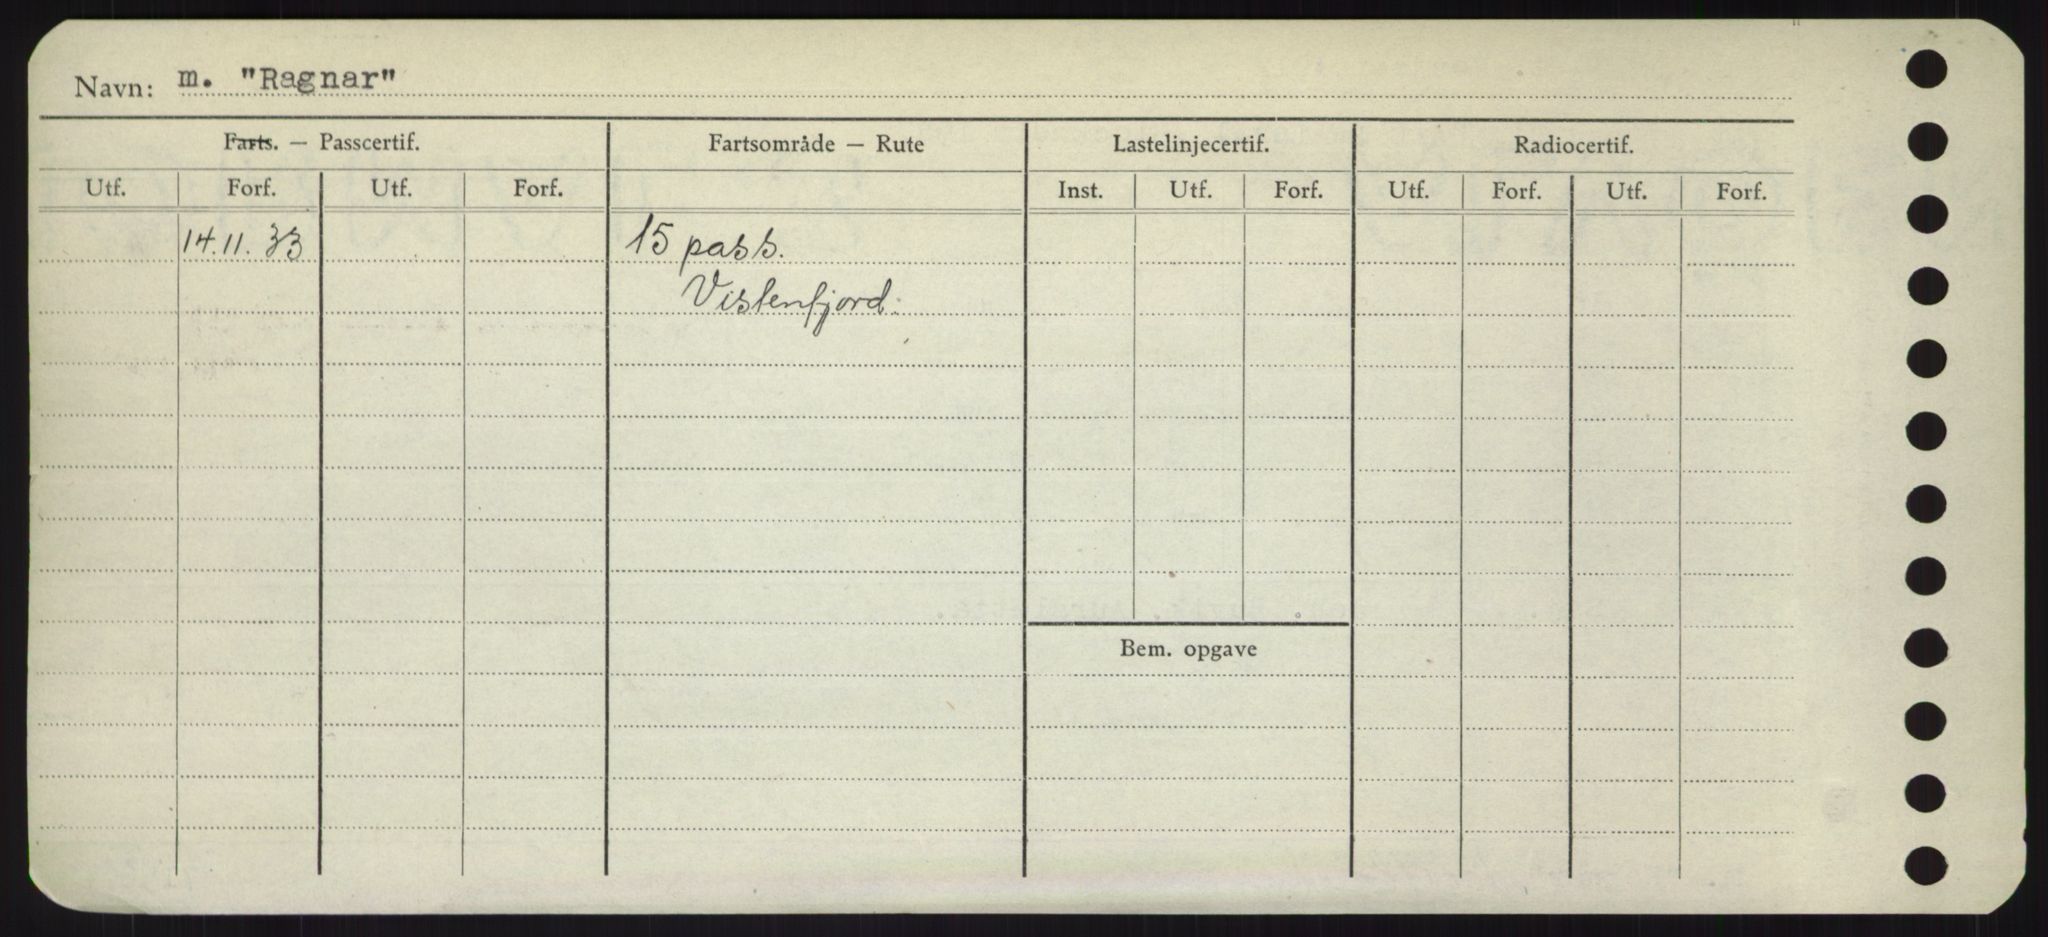 Navn: m. "Ragnar"
Farts. — Passcertif. Fartsområde — Rute Lastelinjecertif. Radiocertif.
Utf. Forf. Utf. Forf. Inst. Utf. Forf. Utf. Forf. Utf. Forf.
14.11.33 15 pass.
Vistenfjord.
Bem. opgave